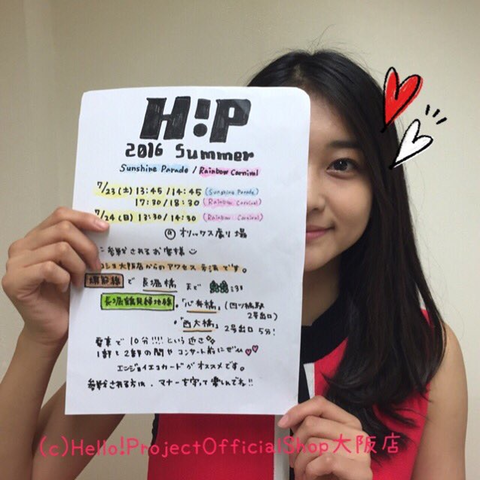 H!P
2016 Summer
Sunshine Parade / Rainbow Carnival
7/23(土) 13:45 /14:45 (Sunshine Parade)
17:30 /18:30 (Rainbow Carnival)
7/24(日) 13:30 /14:30 (Rainbow Carnival)
@ オリックス劇場
参戦されるお客様
大阪店からのアクセス 方法です。
堺筋線 で 長堀橋 まで
長堀鶴見緑地線 「心斎橋」(四ツ橋駅 2号出口)
・「西大橋」 2号出口 5分!
電車で10分!!!という近さ
1部と2部の間やコンサート前にぜひ
エンジョイエコカードがオススメです。
参戦される方は、マナーを守って楽しんでね!!
(c)Hello!ProjectOfficialShop大阪店